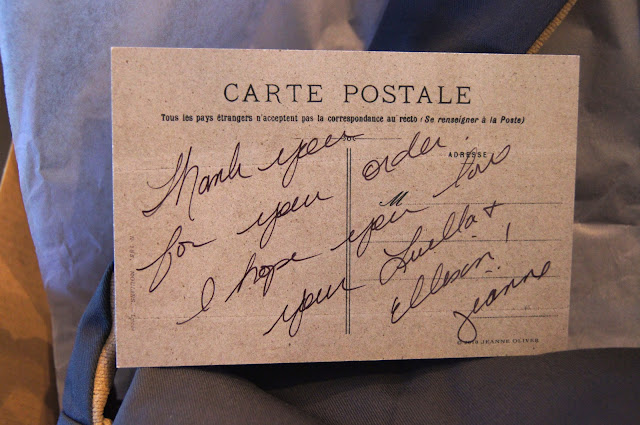 CARTE POSTALE
Tous les pays étrangers n'acceptent pas la correspondance au recto (Se renseigner à la Poste)
ADRESSE
M
Thank you
for your order.
I hope you love
your Luella &
Ellison!
Jeanne
© 2010 JEANNE OLIVER